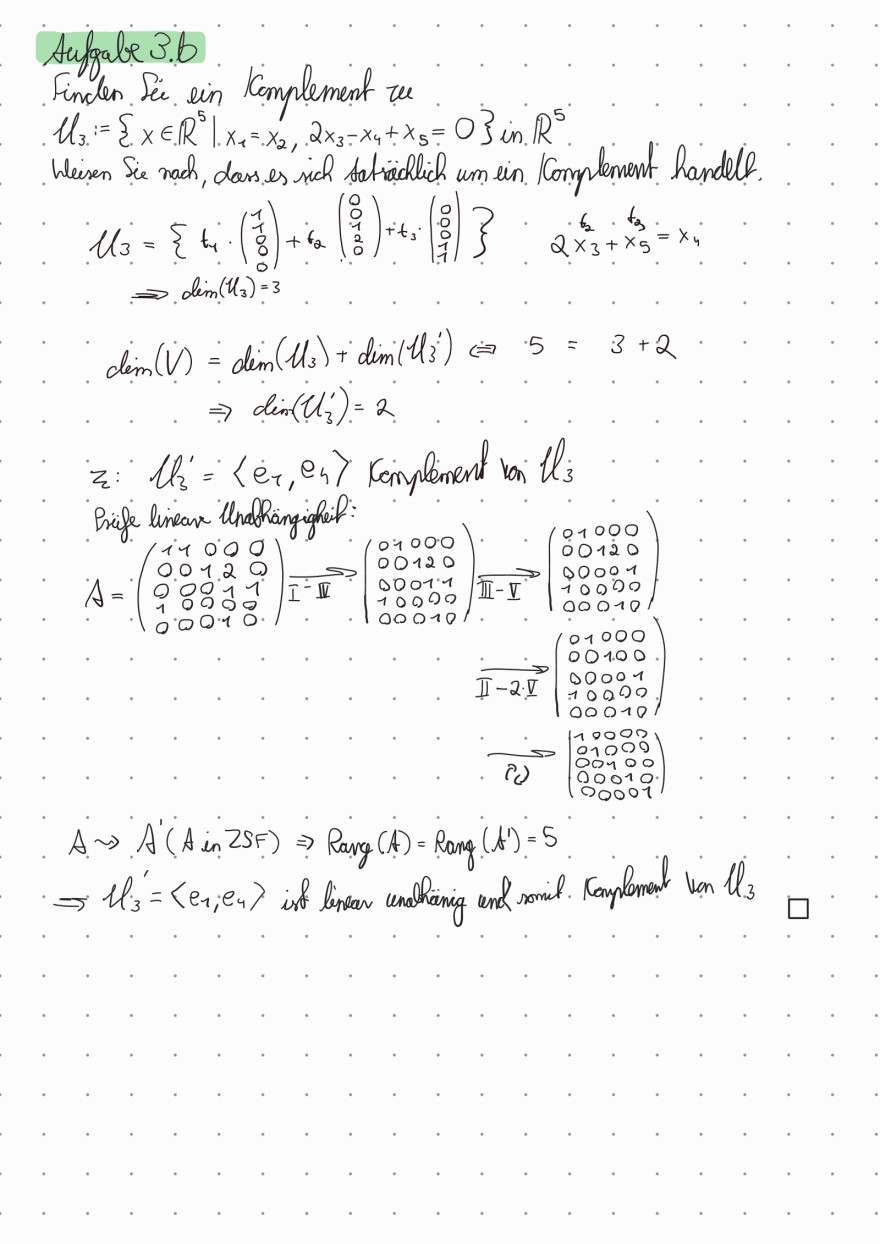 Aufgabe 3.b
Finden Sie ein Komplement zu
U₃ := { x ∈ ℝ⁵ | x₁ = x₂, 2x₃ - x₄ + x₅ = 0 } in ℝ⁵
Weisen Sie nach, dass es sich tatsächlich um ein Komplement handelt.
U₃ = { t₁ · (1 1 0 0 0) + t₂ (0 0 1 2 0) + t₃ · (0 0 0 1 1) }
t₂ t₃
2x₃ + x₅ = x₄
⇒ dim(U₃) = 3
dim(V) = dim(U₃) + dim(U₃') ⇔ 5 = 3 + 2
⇒ dim(U₃') = 2
Z: U₃' = ⟨e₁, e₄⟩ Komplement von U₃
Prüfe lineare Unabhängigkeit:
A =
1 1 0 0 0
0 0 1 2 0
0 0 0 1 1
1 0 0 0 0
0 0 0 1 0
I - IV
0 1 0 0 0
0 0 1 2 0
0 0 0 1 1
1 0 0 0 0
0 0 0 1 0
III - V
0 1 0 0 0
0 0 1 2 0
0 0 0 0 1
1 0 0 0 0
0 0 0 1 0
II - 2·V
0 1 0 0 0
0 0 1 0 0
0 0 0 0 1
1 0 0 0 0
0 0 0 1 0
1 0 0 0 0
0 1 0 0 0
0 0 1 0 0
0 0 0 1 0
0 0 0 0 1
A ⇝ A' (A in ZSF) ⇒ Rang(A) = Rang(A') = 5
⇒ U₃' = ⟨e₁, e₄⟩ ist linear unabhänig und somit Komplement von U₃ □